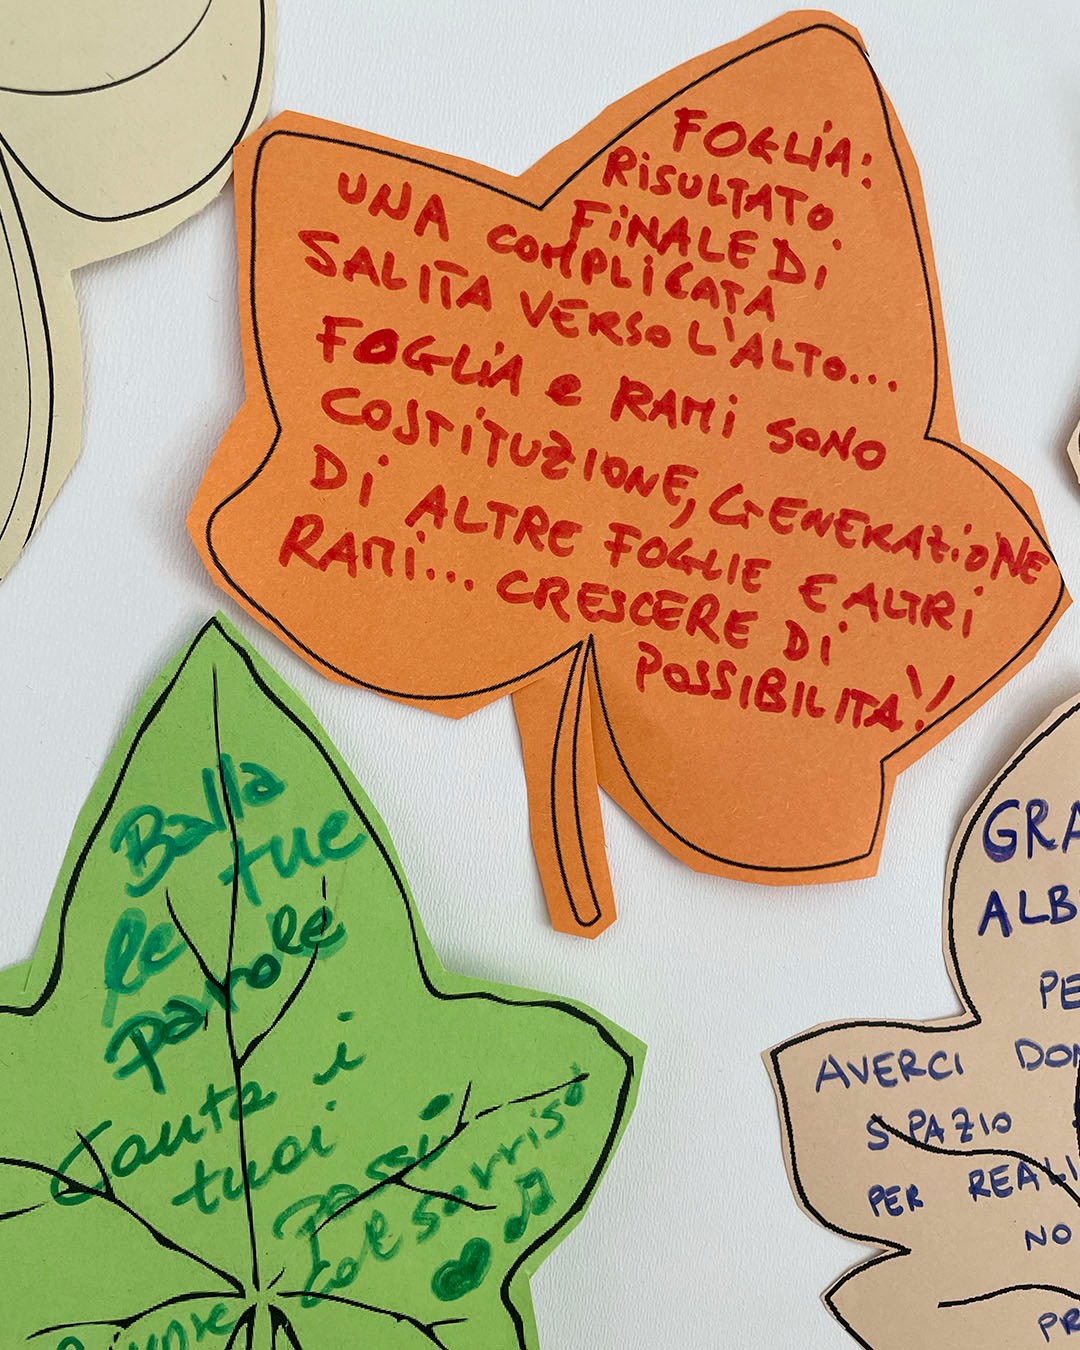 FOGLIA:
RISULTATO
FINALE DI
UNA COMPLICATA
SALITA VERSO L'ALTO...
FOGLIA e RAMI SONO
COSTITUZIONE, GENERAZIONE
DI ALTRE FOGLIE E ALTRI
RAMI... CRESCERE DI
POSSIBILITA'!
Balla
le tue
parole
Canta i
tuoi passi
col sorriso
GRA
ALB
PE
AVERCI DON
SPAZIO
PER REALI
NO
PR